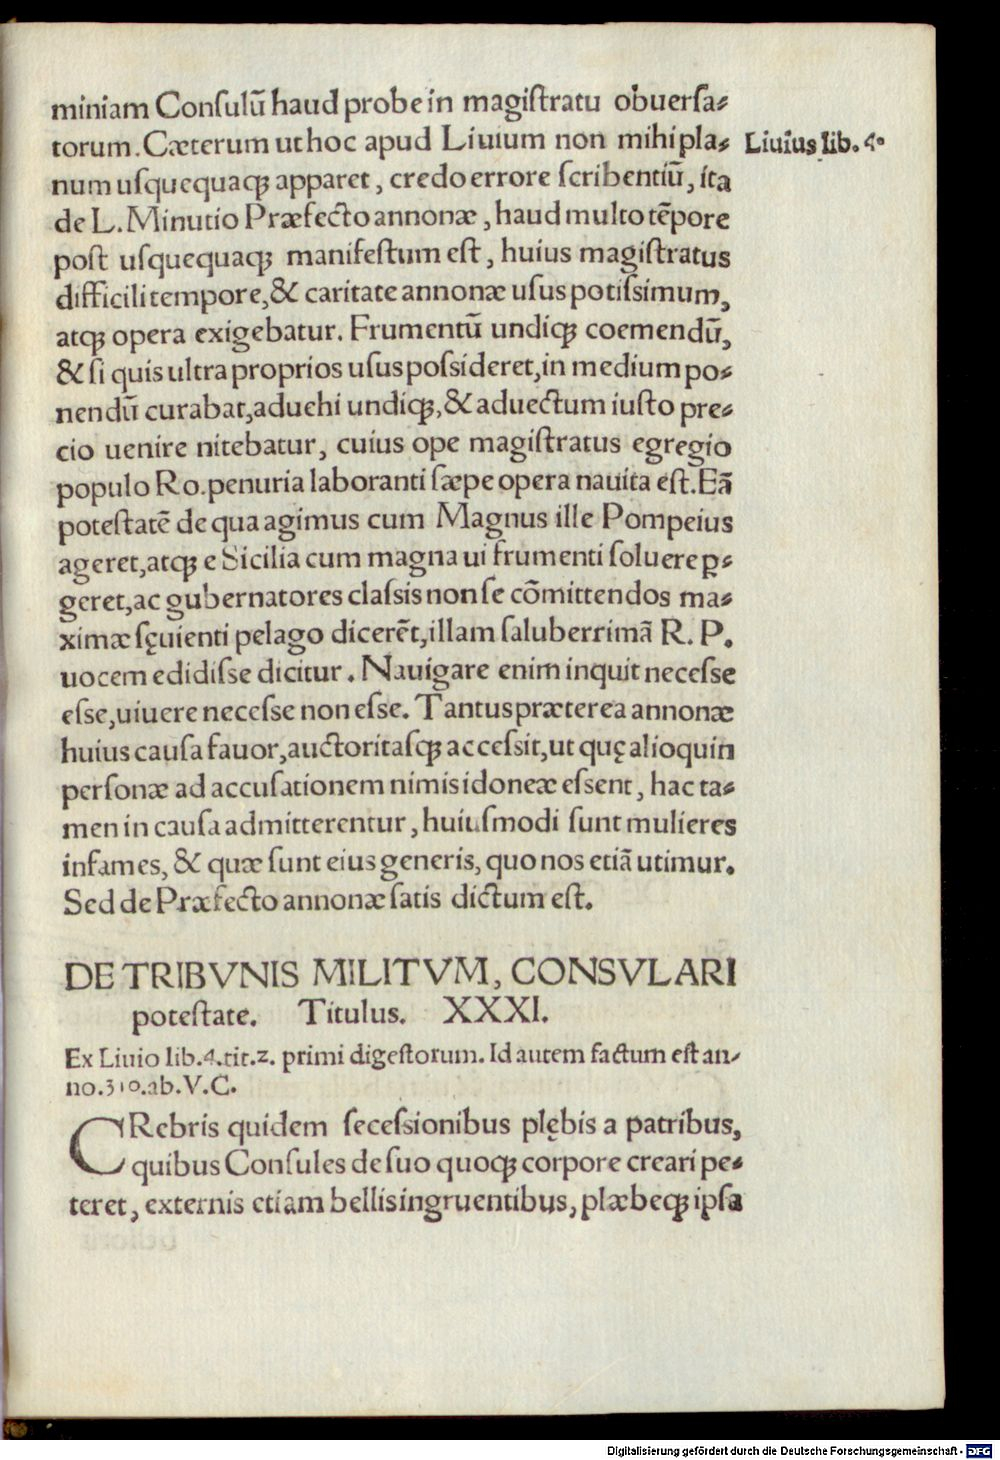 miniam Conſulū haud probe in magiſtratu obuerſa⸗
torum. Cæterum ut hoc apud Liuium non mihi pla⸗
Liuius lib. 4.
num uſquequaqꝫ apparet, credo errore ſcribentiū, ita
de L. Minutio Præfecto annonæ, haud multo tēpore
poſt uſquequaqꝫ manifeſtum eſt, huius magiſtratus
difficili tempore, & caritate annonæ uſus potiſsimum,
atqꝫ opera exigebatur. Frumentū undiqꝫ coemendū,
& ſi quis ultra proprios uſus poſsideret, in medium po⸗
nendū curabat, aduehi undiqꝫ, & aduectum iuſto pre⸗
cio uenire nitebatur, cuius ope magiſtratus egregio
populo Ro. penuria laboranti ſæpe opera nauita eſt. Eā
poteſtatē de qua agimus cum Magnus ille Pompeius
ageret, atqꝫ e Sicilia cum magna ui frumenti ſoluere ꝑ⸗
geret, ac gubernatores claſsis non ſe cōmittendos ma⸗
ximæ ſęuienti pelago dicerēt, illam ſaluberrimā R. P.
uocem edidiſse dicitur. Nauigare enim inquit neceſse
eſse, uiuere neceſse non eſse. Tantus præterea annonæ
huius cauſa fauor, auctoritaſqꝫ acceſsit, ut quę alioquin
perſonæ ad accuſationem nimis idoneæ eſsent, hac ta⸗
men in cauſa admitterentur, huiuſmodi ſunt mulieres
infames, & quæ ſunt eius generis, quo nos etiā utimur.
Sed de Præfecto annonæ ſatis dictum eſt.
DE TRIBVNIS MILITVM, CONSVLARI
poteſtate. Titulus. XXXI.
Ex Liuio lib. 4. tit. 2. primi digeſtorum. Id autem factum eſt an⸗
no. 310. ab. V. C.
CRebris quidem ſeceſsionibus plębis a patribus,
quibus Conſules de ſuo quoqꝫ corpore creari pe⸗
teret, externis etiam bellis ingruentibus, plæbeqꝫ ipſa
Digitalisierung gefördert durch die Deutsche Forschungsgemeinschaft - DFG